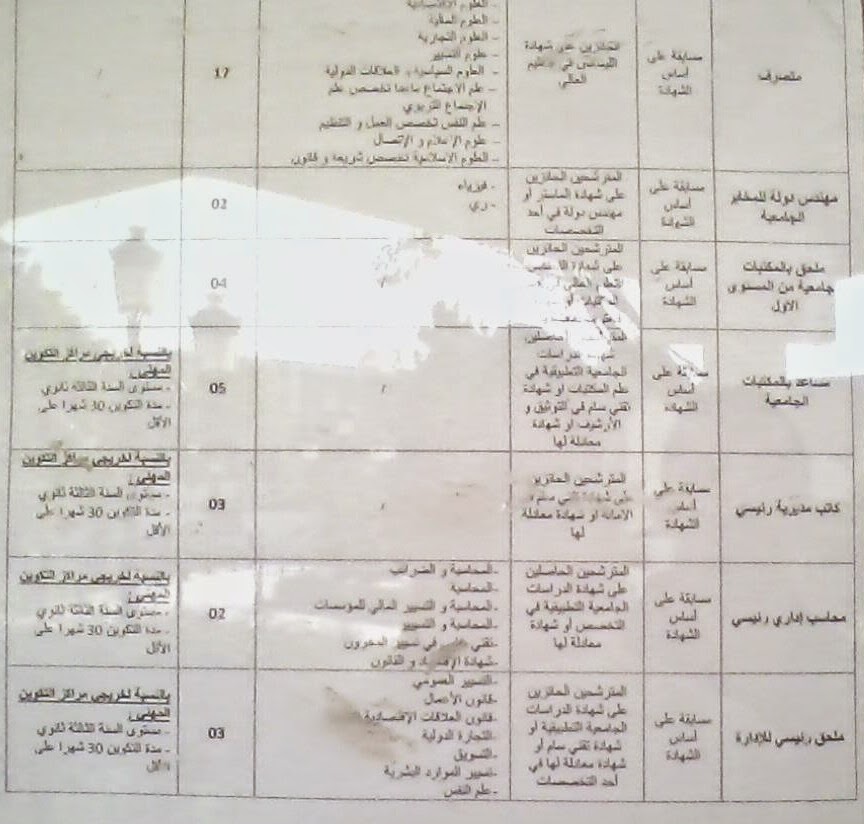 متصرف
مسابقة على
أساس
الشهادة
الحائزين على شهادة
الليسانس في التعليم
العالي
- العلوم الاقتصادية
- العلوم المالية
- العلوم التجارية
- علوم التسيير
- العلوم السياسية و العلاقات الدولية
- علم الاجتماع ماعدا تخصص علم
الاجتماع التربوي
- علم النفس تخصص العمل و التنظيم
- علوم الإعلام و الإتصال
- العلوم الاسلامية تخصص شريعة و قانون
17
/
مهندس دولة للمخابر
الجامعية
مسابقة على
أساس
الشهادة
المترشحين الحائزين
على شهادة الماستر أو
مهندس دولة في أحد
التخصصات
- فيزياء
- ري
02
ملحق بالمكتبات
جامعية من المستوى
الأول
مسابقة على
أساس
الشهادة
المترشحين الحائزين
على شهادة
التعليم العالي
/
04
مساعد بالمكتبات
الجامعية
مسابقة على
أساس
الشهادة
شهادة الدراسات
الجامعية التطبيقية في
علم المكتبات او شهادة
تقني سام في التوثيق و
الأرشوف او شهادة
معادلة لها
/
05
بالنسبة لخريجي مراكز التكوين
المهني:
- مستوى السنة الثالثة ثانوي
- مدة التكوين 30 شهرا على
الأقل
كاتب مديرية رئيسي
مسابقة على
أساس
الشهادة
المترشحين الحائزين
على شهادة تقني سام
الامانة او شهادة معادلة
لها
/
03
بالنسبة لخريجي مراكز التكوين
المهني:
- مستوى السنة الثالثة ثانوي
- مدة التكوين 30 شهرا على
الأقل
محاسب إداري رئيسي
مسابقة على
أساس
الشهادة
المترشحين الحاصلين
على شهادة الدراسات
الجامعية التطبيقية في
التخصص أو شهادة
معادلة لها
-المحاسبة و الضرائب
-المحاسبة
-المحاسبة و التسيير المالي للمؤسسات
-المحاسبة و التسيير
-تقني في تسيير المخزون
-شهادة و القانون
02
بالنسبة لخريجي مراكز التكوين
المهني:
- مستوى السنة الثالثة ثانوي
- مدة التكوين 30 شهرا على
الأقل
ملحق رئيسي للإدارة
مسابقة على
أساس
الشهادة
المترشحين الحائزين
على شهادة الدراسات
الجامعية التطبيقية أو
شهادة تقني سام أو
شهادة معادلة لها في
أحد التخصصات
-التسيير العمومي
-قانون الأعمال
-قانون العلاقات الإقتصادية
-التجارة الدولية
-التسويق
-تسيير الموارد البشرية
- علم النفس
03
بالنسبة لخريجي مراكز التكوين
المهني:
- مستوى السنة الثالثة ثانوي
- مدة التكوين 30 شهرا على
الأقل